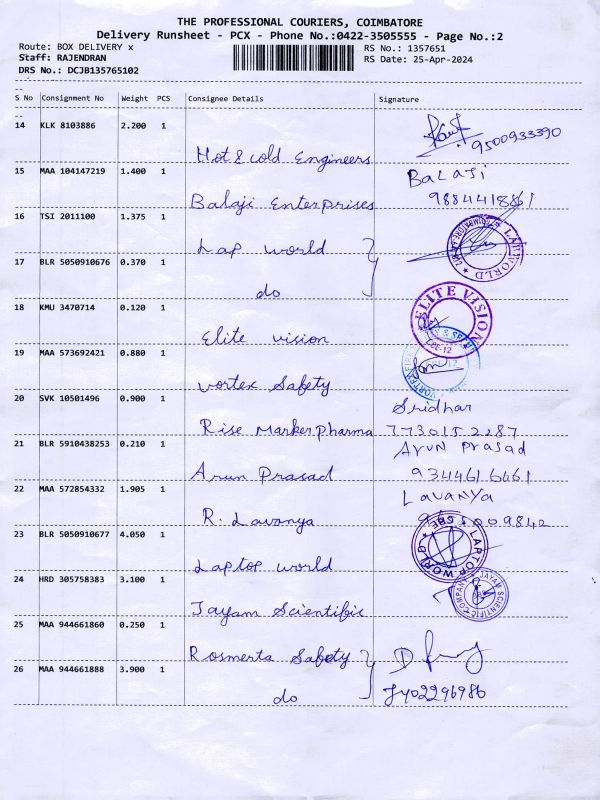 THE PROFESSIONAL COURIERS, COIMBATORE
Delivery Runsheet - PCX - Phone No.:0422-3505555 - Page No.:2
Route: BOX DELIVERY x RS No.: 1357651
Staff: RAJENDRAN RS Date: 25-Apr-2024
DRS No.: DCJB135765102
S No Consignment No Weight PCS Consignee Details Signature
14 KLK 8103886 2.200 1 Hot & cold Engineers 9500933390
15 MAA 104147219 1.400 1 Balaji Enterprises BALAJI 9884418861
16 TSI 2011100 1.375 1 Lap world LAP WORLD
17 BLR 5050910676 0.370 1 do
18 KMU 3470714 0.120 1 Elite vision ELITE VISION CBE-12
19 MAA 573692421 0.880 1 vortex Safety
20 SVK 10501496 0.900 1 Rise Marker pharma Sridhar 7730152287
21 BLR 5910438253 0.210 1 Arun Prasad Arun Prasad 9344616661
22 MAA 572854332 1.905 1 R. Lavanya Lavanya
23 BLR 5050910677 4.050 1 Laptop world LAPTOP WORLD CBE
24 HRD 305758383 3.100 1 Jayam Scientific JAYAM SCIENTIFIC COMPANY
25 MAA 944661860 0.250 1 Rosmerta Safety
26 MAA 944661888 3.900 1 do 7402296986